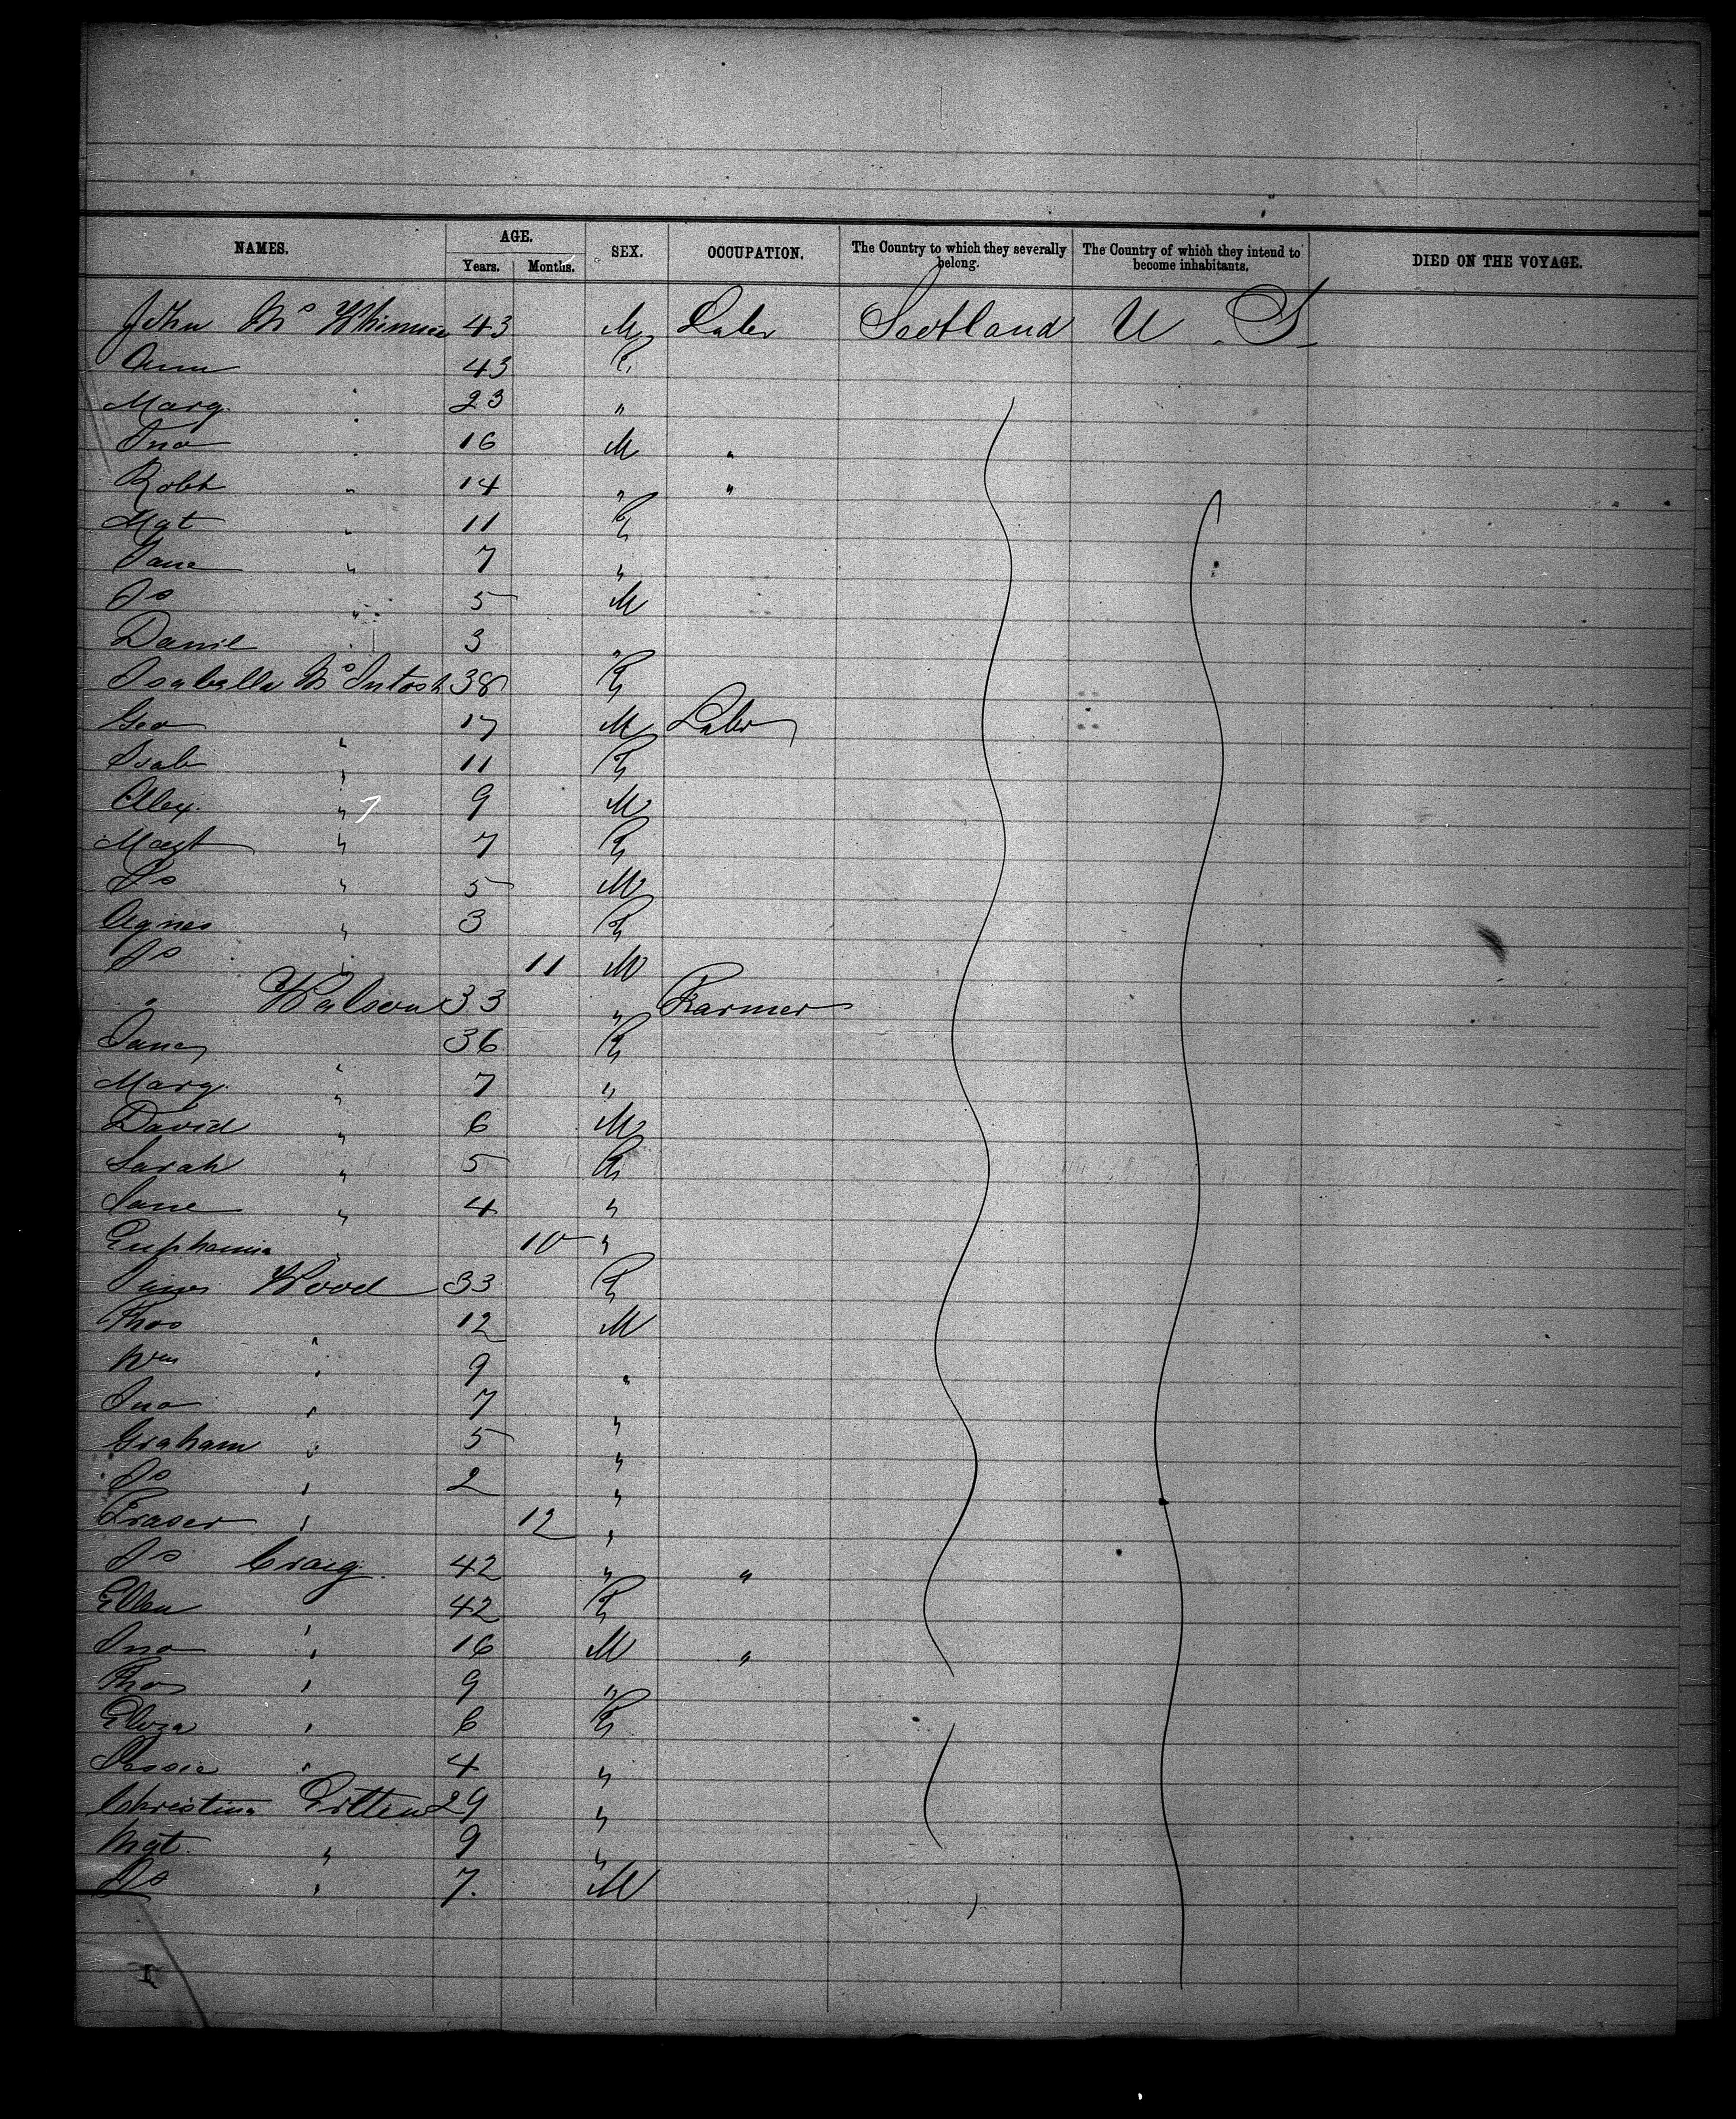 NAMES. AGE. SEX. OCCUPATION. The Country to which they severally belong. The Country of which they intend to become inhabitants. DIED ON THE VOYAGE.
Years. Months.
John Mc 43 M Labr Scotland U. S.
Ann 43 F
Marg. " 23 "
Jno " 16 M "
Robt " 14 " "
Mgt " 11 F
Jane " 7 "
Js " 5 M
Danil " 3 "
Isabella McIntosh 38 F
Geo " 17 M Labr
Isab " 11 F
Alex. " 9 M
Magt " 7 F
Js " 5 M
Agnes " 3 F
Js " 11 M
" Watson 33 " Farmer
Jane 36 F
Marg. " 7 "
David " 6 M
Sarah " 5 F
Jane " 4 "
Euphemia " 10 "
Wood 33 F
Thos " 12 M
Wm " 9 "
Jno " 7 "
Graham " 5 "
Js " 2 "
Fraser " 12 "
Js Craig. 42 " "
Ellen " 42 F
Jno " 16 M "
Thos " 9 "
Eliza " 6 F
Jessie " 4 "
Christina 29 "
Mgt. " 9 "
Js " 7. M